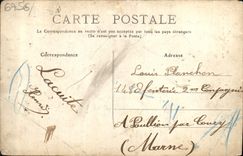 6456
CARTE POSTALE
La Correspondance au recto n'est pas acceptée par tous les pays étrangers
(Se renseigner à la Poste)
Correspondance
Adresse
Lacuite
Henri
Louis Planchon
148 d'Infanterie 2me Compagnie
A Poullion par Coucy
(Marne)